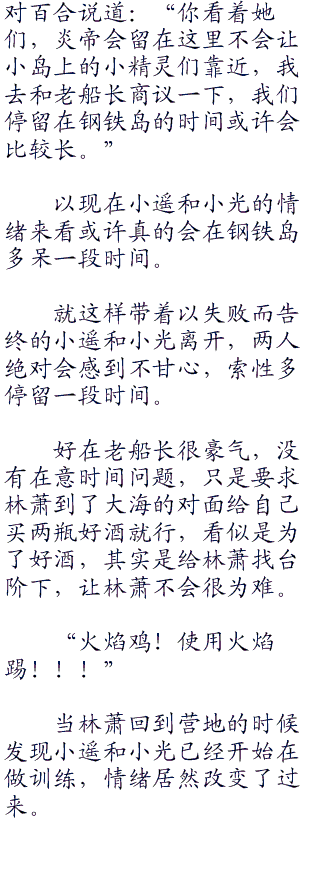 对百合说道：“你看着她
们，炎帝会留在这里不会让
小岛上的小精灵们靠近，我
去和老船长商议一下，我们
停留在钢铁岛的时间或许会
比较长。”
以现在小遥和小光的情
绪来看或许真的会在钢铁岛
多呆一段时间。
就这样带着以失败而告
终的小遥和小光离开，两人
绝对会感到不甘心，索性多
停留一段时间。
好在老船长很豪气，没
有在意时间问题，只是要求
林萧到了大海的对面给自己
买两瓶好酒就行，看似是为
了好酒，其实是给林萧找台
阶下，让林萧不会很为难。
“火焰鸡！使用火焰
踢！！！”
当林萧回到营地的时候
发现小遥和小光已经开始在
做训练，情绪居然改变了过
来。